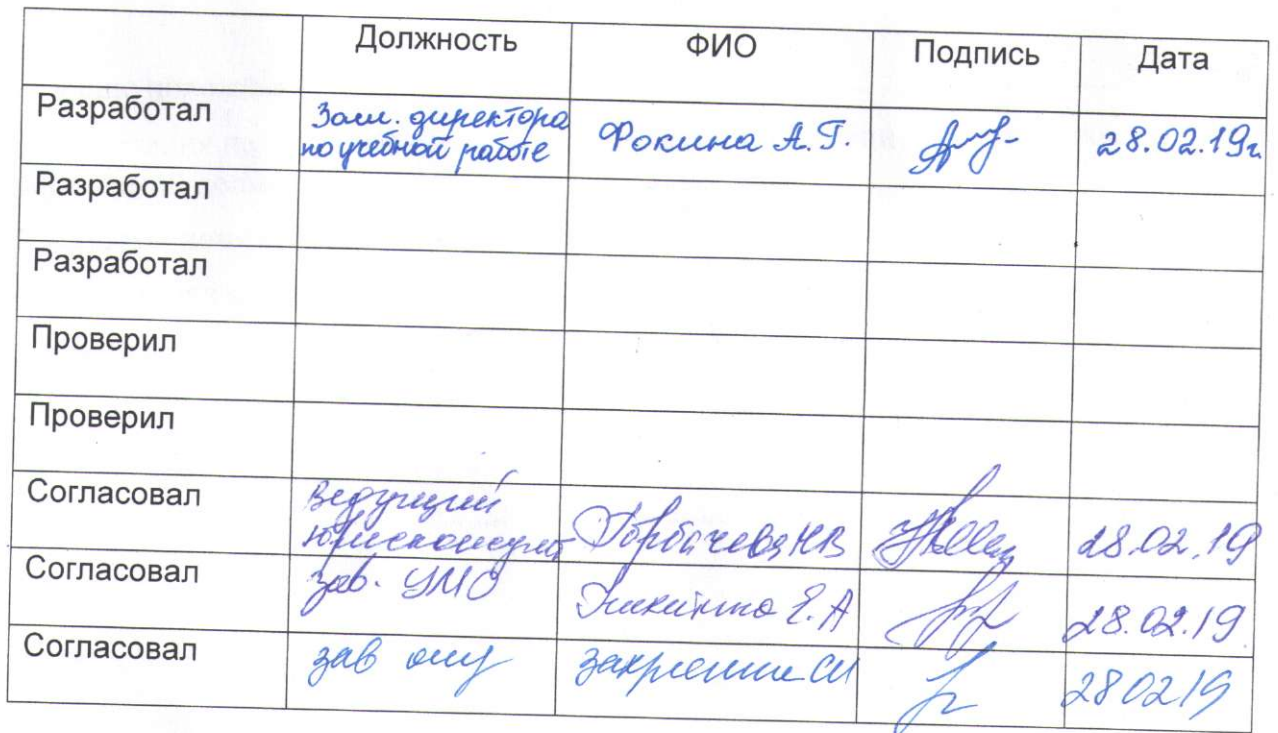 Должность ФИО Подпись Дата
Разработал Зам. директора Фокина А.Г. 28.02.19г
по учебной работе
Разработал
Разработал
Проверил
Проверил
Согласовал Ведущий
юрисконсульт Горбачева НВ 28.02.19
Согласовал зав. УМО Никитина Е.А 28.02.19
Согласовал зав 280219